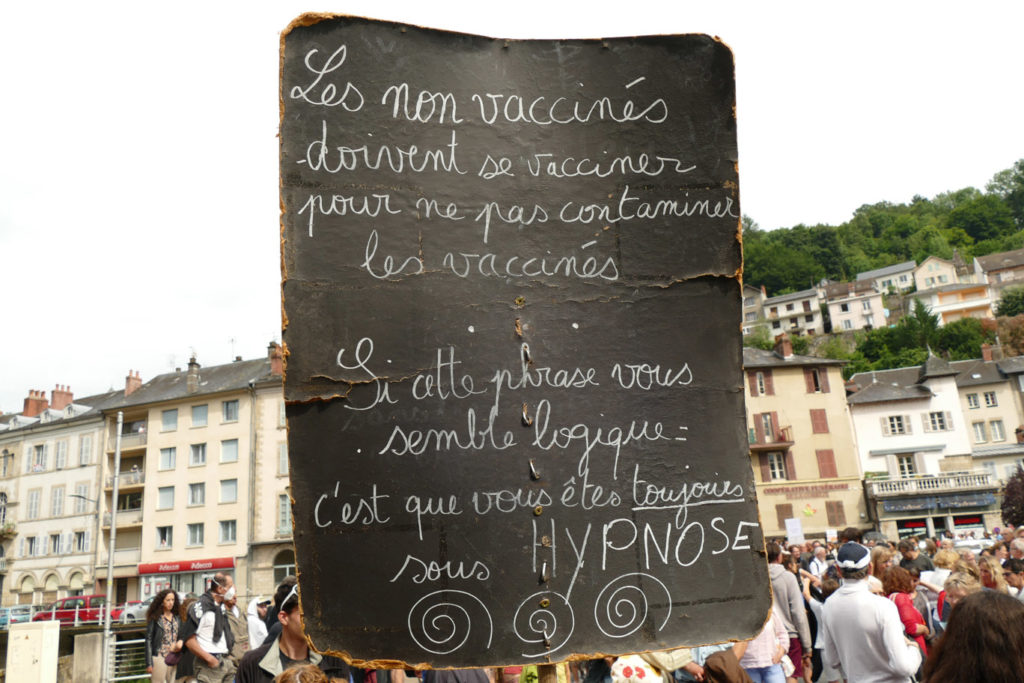 Les non vaccinés
doivent se vacciner
pour ne pas contaminer
les vaccinés
Si cette phrase vous
semble logique =
c'est que vous êtes toujours
sous HYPNOSE
Adecco Adecco
COOPERATIVE FUNÉRAIRE